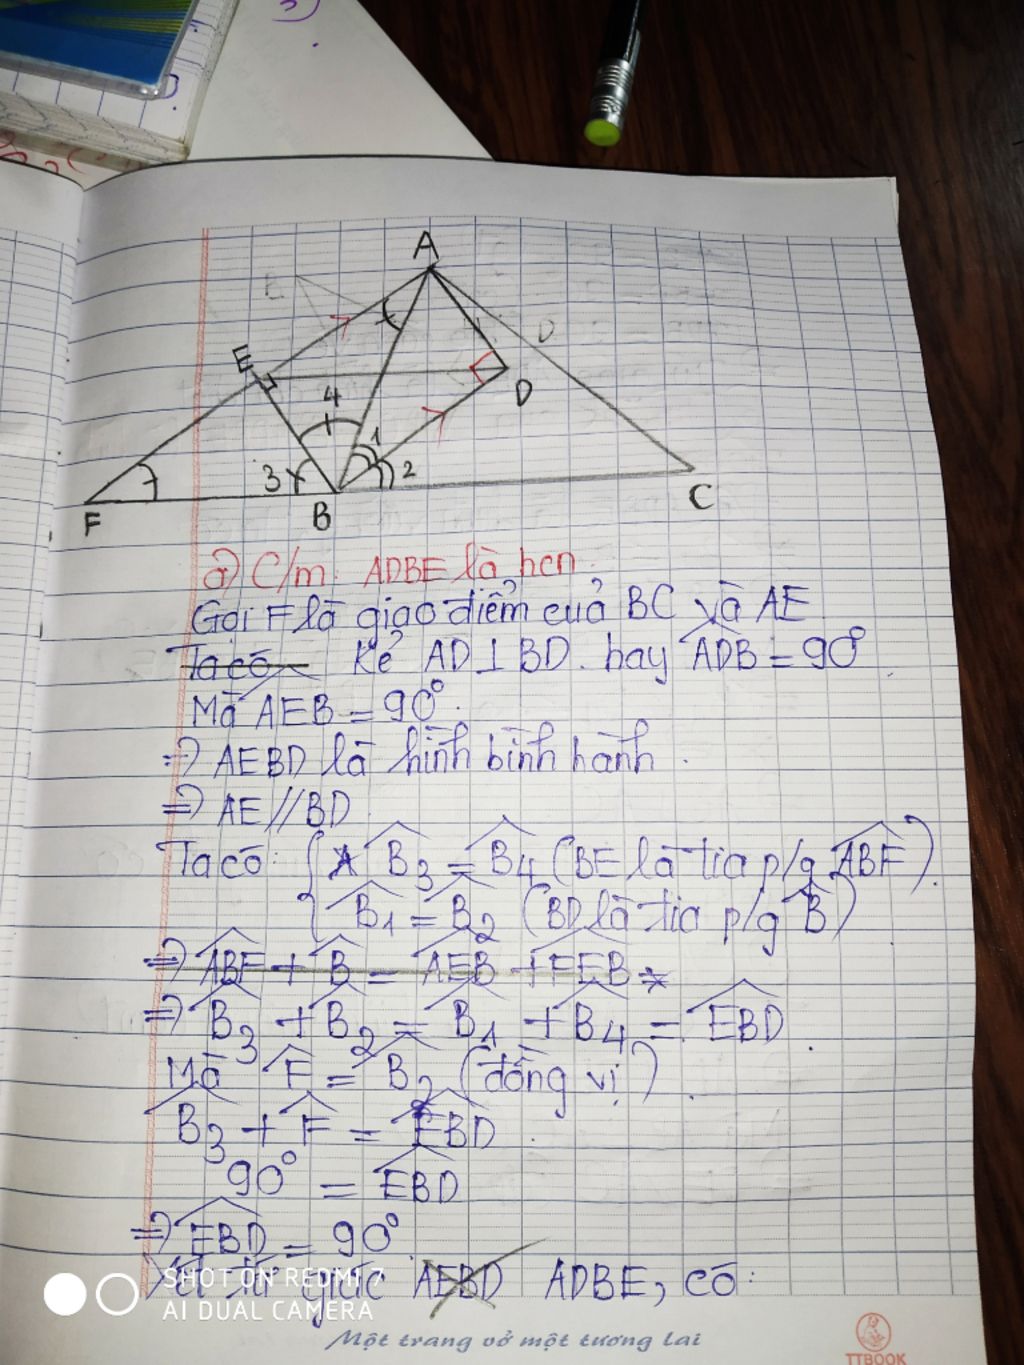 A
E
D
E
D
4
1
3
2
F
B
C
a) C/m. ADBE là hcn.
Gọi F là giao điểm của BC và AE
Ta có Kẻ AD ⊥ BD. hay ADB = 90°
Mà AEB = 90°.
=> AEBD là hình bình hành.
=> AE // BD
Ta có: { B3 = B4 (BE là tia p/g ABF).
B1 = B2 (BD là tia p/g B)
=> ABF + B = AEB + FEB
=> B3 + B2 = B1 + B4 = EBD
Mà F = B2 (đồng vị).
B3 + F = EBD.
90° = EBD
=> EBD = 90°.
Xét tứ giác AEBD ADBE, có:
SHOT ON REDMI 7
AI DUAL CAMERA
Một trang vở một tương lai
TTBOOK